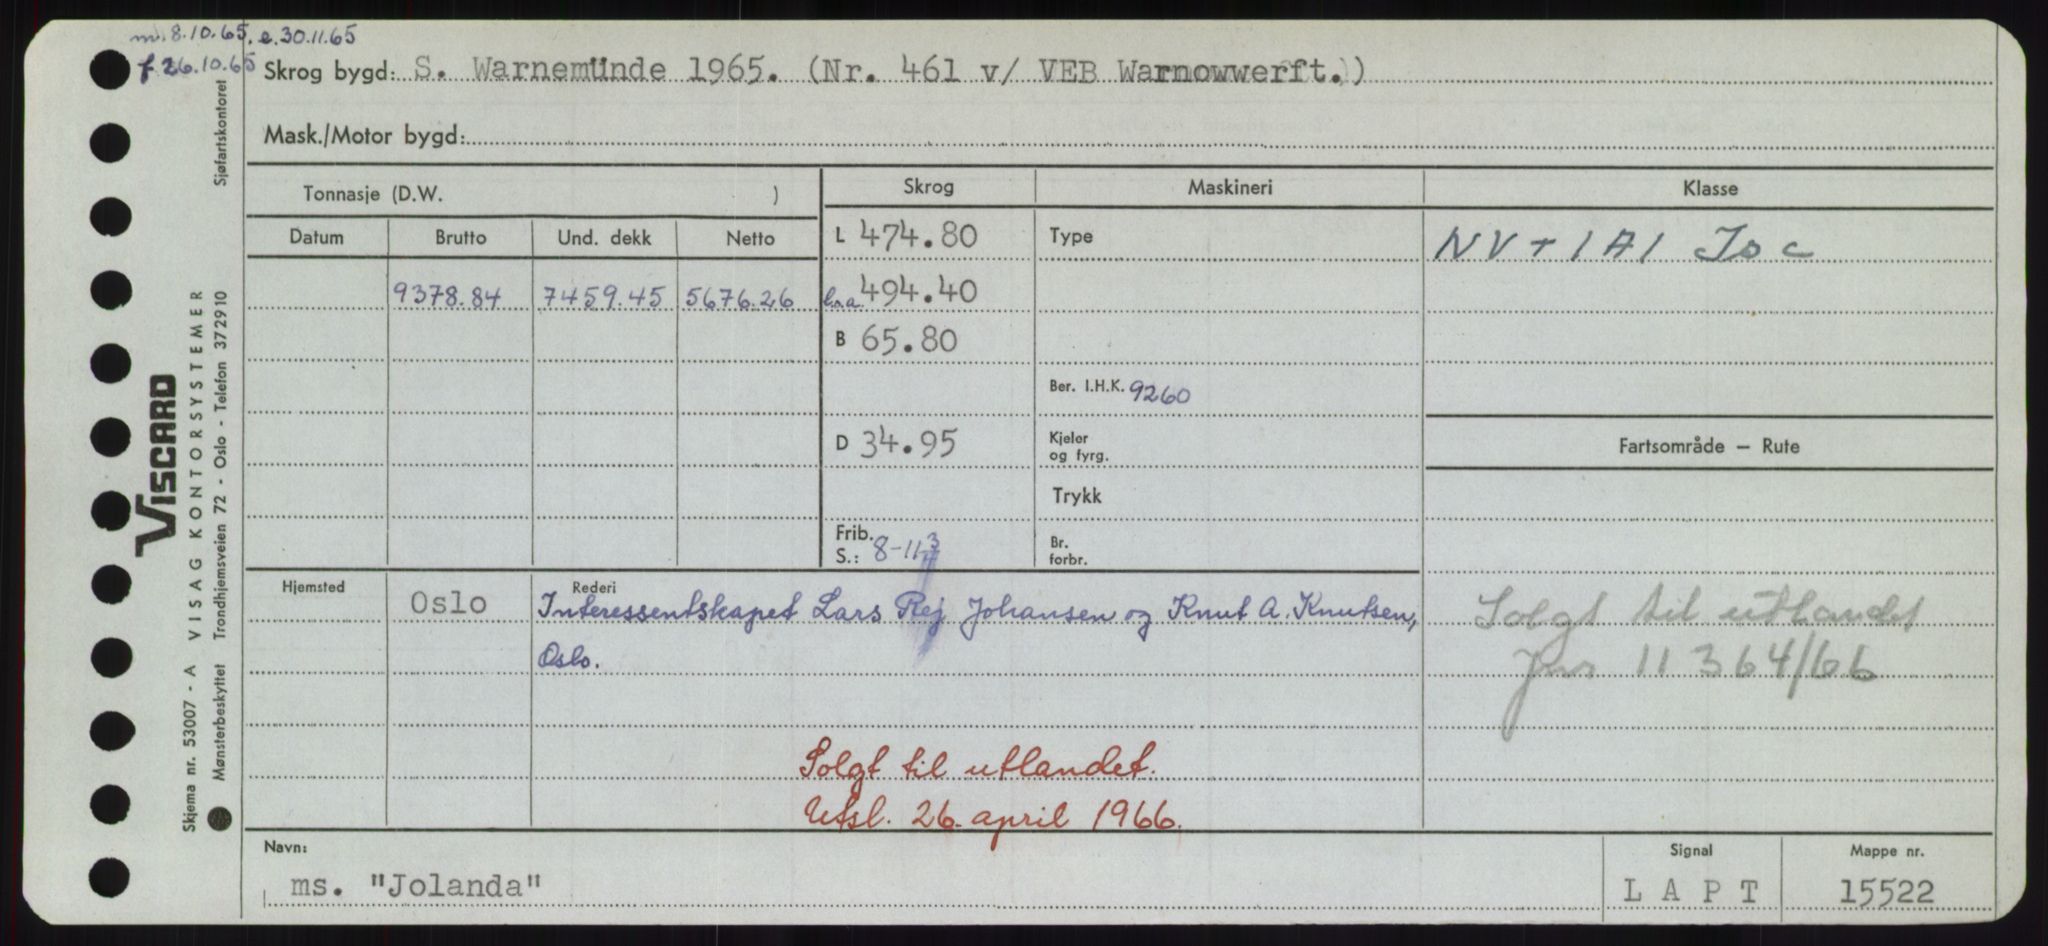 m. 8.10.65, e. 30.11.65
f. 26.10.65
Skrog bygd: S. Warnemünde 1965. (Nr. 461 v/ VEB Warnowwerft.)
Mask./Motor bygd:
Tonnasje (D.W. )
Skrog
Maskineri
Klasse
Datum Brutto Und. dekk Netto
L 474.80
Type
NV + 1A1 Is C
9378.84 7459.45 5676.26
l.o.a. 494.40
B 65.80
Ber. I.H.K. 9260
D 34.95
Kjeler
og fyrg.
Fartsområde — Rute
Trykk
Frib.
S.: 8-11 3/4
Br.
forbr.
Hjemsted
Oslo
Rederi
Interessentskapet Lars Rej Johansen og Knut A. Knutsen,
Oslo.
Solgt til utlandet
Jnr 11364/66
Solgt til utlandet.
Utsl. 26. april 1966.
Navn:
ms. "Jolanda"
Signal
LAPT
Mappe nr.
15522
VISCARD
Skjema nr. 53007 - A VISAG KONTORSYSTEMER
Mønsterbeskyttet Trondhjemsveien 72 - Oslo - Telefon 372910 Sjøfartskontoret